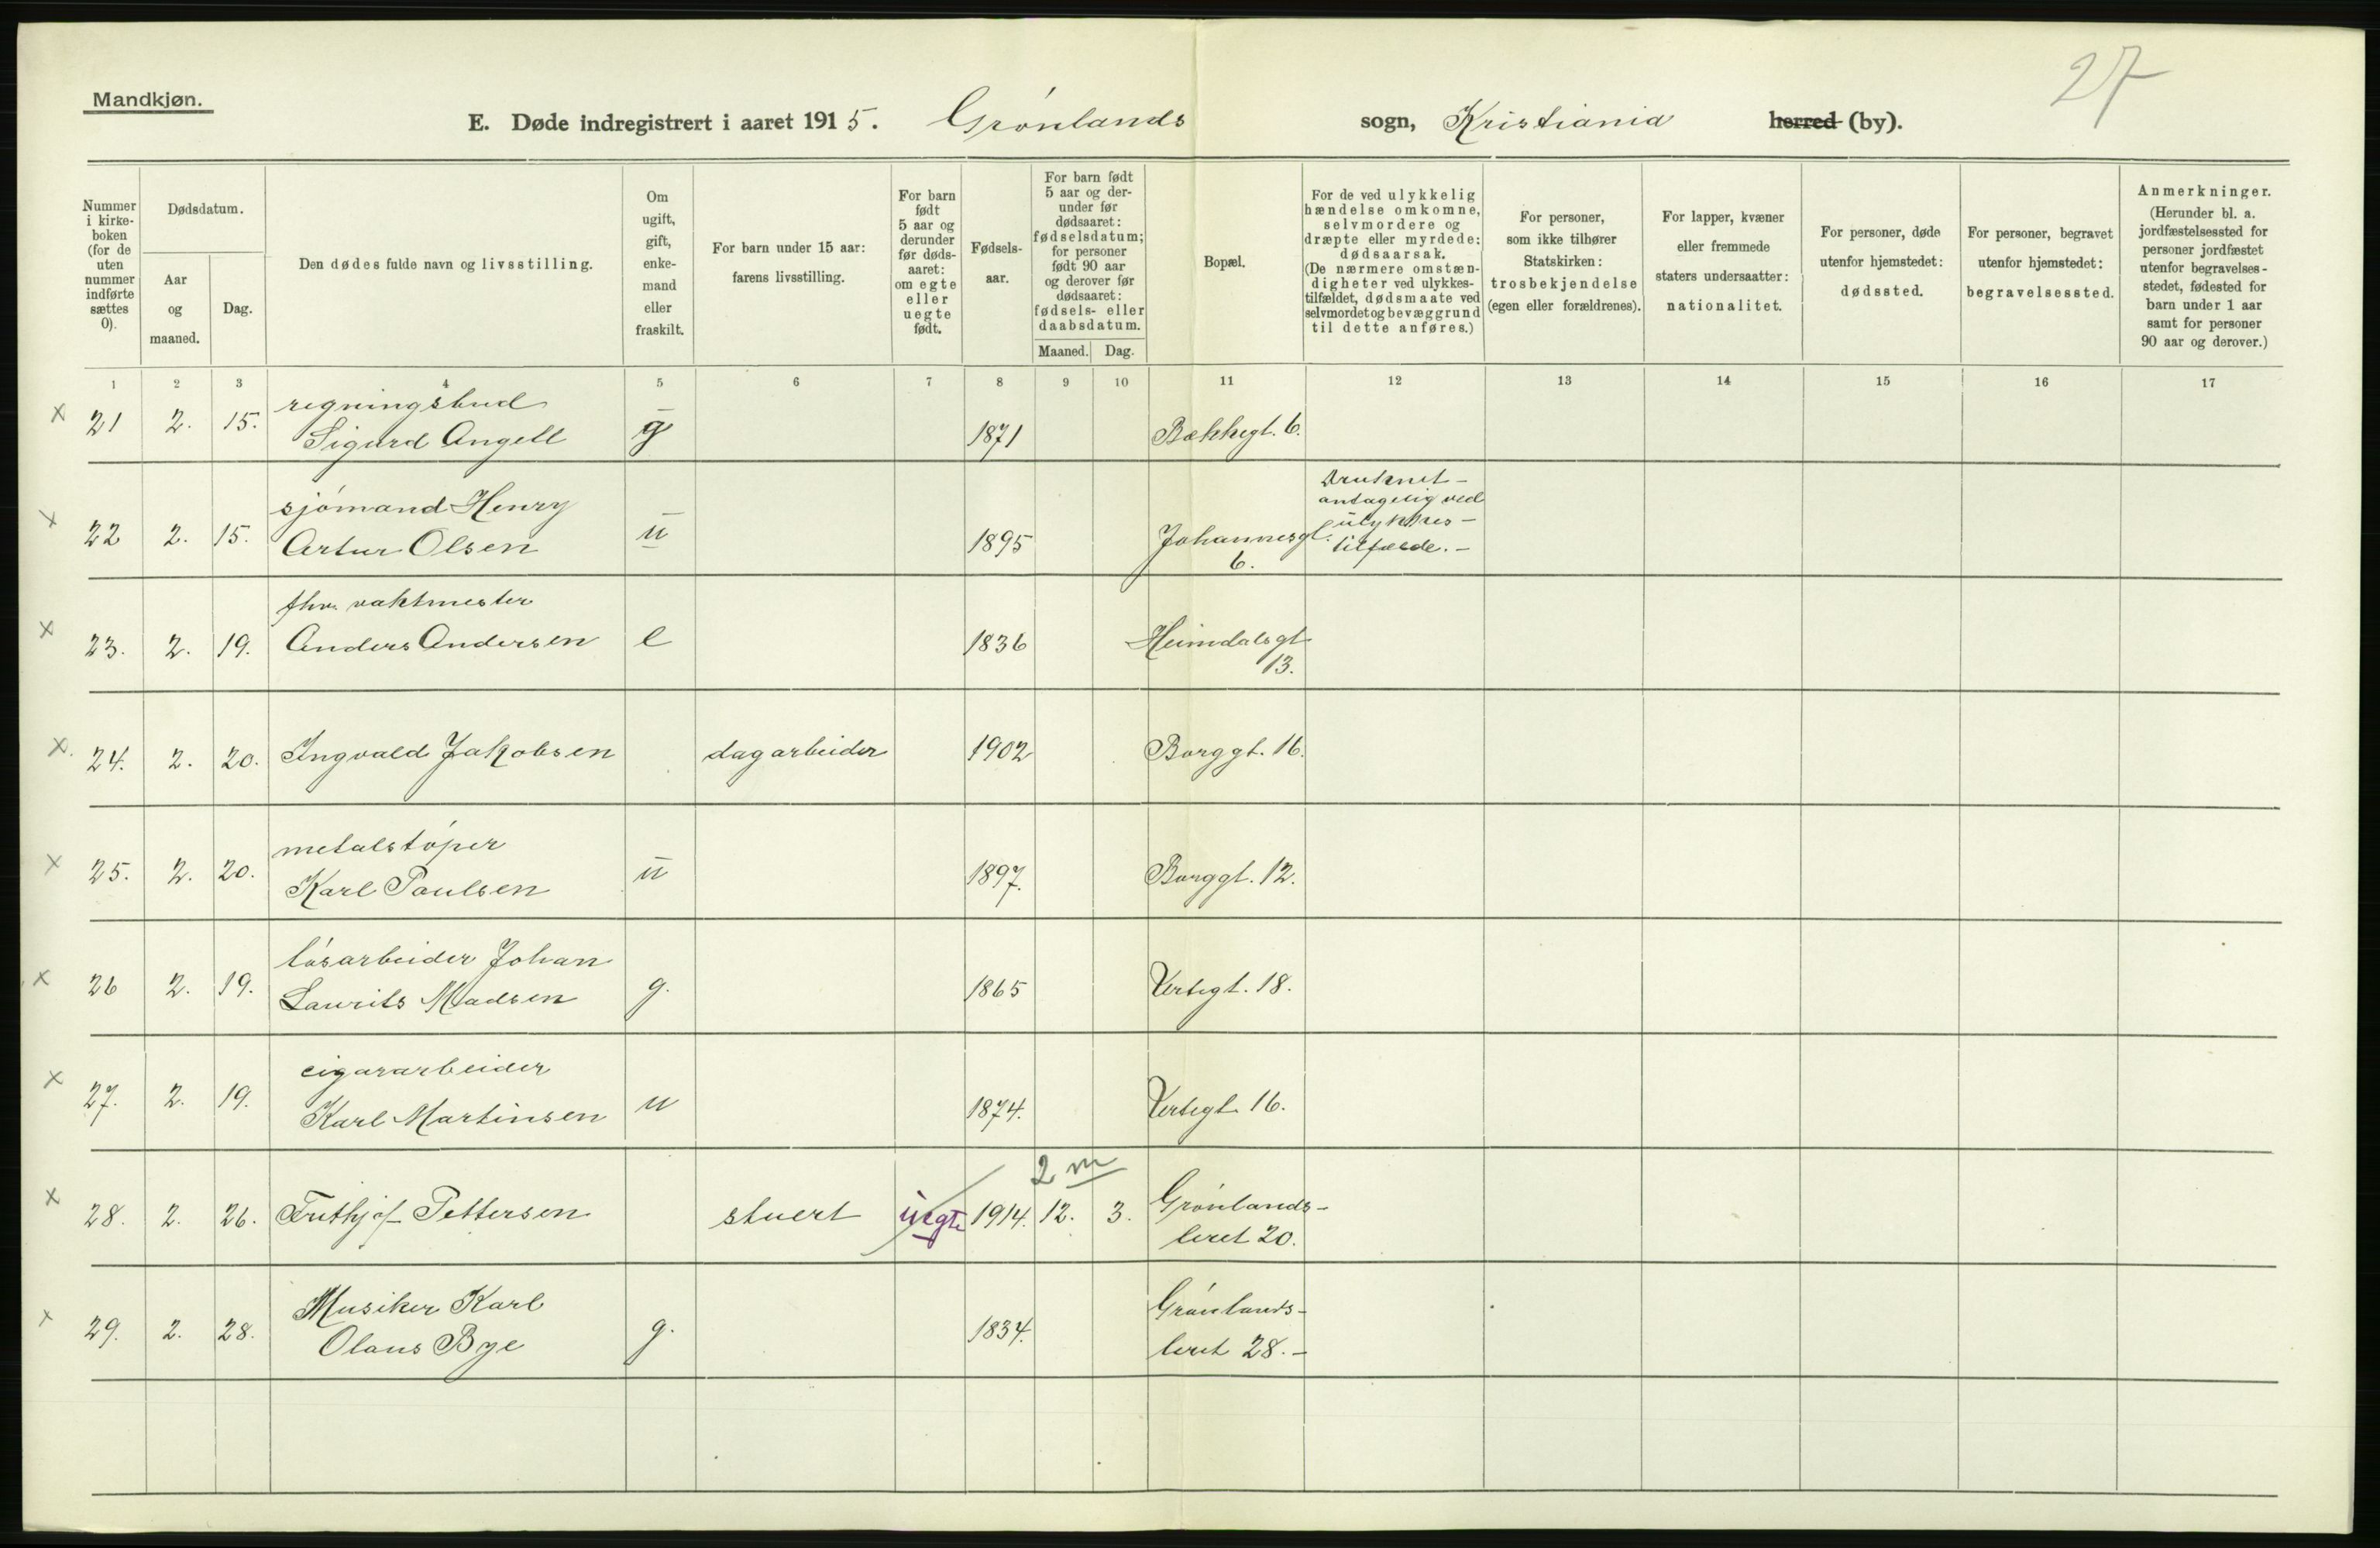 27
Mandkjøn.
E. Døde indregistrert i aaret 1915. Grønlands sogn, Kristiania herred (by).
Nummer i kirke-boken (for de uten nummer indførte sættes 0).
Dødsdatum.
Aar og maaned.
Dag.
Den dødes fulde navn og livsstilling.
Om ugift, gift, enke-mand eller fraskilt.
For barn under 15 aar: farens livsstilling.
For barn født 5 aar og derunder før døds-aaret: om egte eller uegte født.
Fødsels-aar.
For barn født 5 aar og der-under før dødsaaret: fødselsdatum; for personer født 90 aar og derover før dødsaaret: fødsels- eller daabsdatum.
Maaned. Dag.
Bopæl.
For de ved ulykkelig hændelse omkomne, selvmordere og dræpte eller myrdede: dødsaarsak. (De nærmere omstæn-digheter ved ulykkes-tilfældet, dødsmaate ved selvmordet og bevæggrund til dette anføres.)
For personer, som ikke tilhører Statskirken: trosbekjendelse (egen eller forældrenes).
For lapper, kvæner eller fremmede staters undersaatter: nationalitet.
For personer, døde utenfor hjemstedet: dødssted.
For personer, begravet utenfor hjemstedet: begravelsessted.
Anmerkninger. (Herunder bl. a. jordfæstelsessted for personer jordfæstet utenfor begravelses-stedet, fødested for barn under 1 aar samt for personer 90 aar og derover.)
1 2 3 4 5 6 7 8 9 10 11 12 13 14 15 16 17
regningsbud
x 21 2. 15. Sigurd Angell g 1871 Bækkegt. 6.
sjømand Henry
x 22 2. 15. Artur Olsen u 1895 Johannesgt. 6.
Druknet -
antagelig ved
ulykkes -
tilfælde. -
fhv. vaktmester
x 23. 2. 19. Anders Andersen e 1836 Heimdalsgt 13.
x. 24. 2. 20. Ingvald Jakobsen dagarbeider 1902 Borggt. 16.
metalstøper
x 25. 2. 20. Karl Paulsen u 1897. Borggt. 12.
løsarbeider Johan
x 26 2. 19. Laurits Madsen g. 1865 Versegt. 18.
cigararbeider
x 27. 2. 19. Karl Martinsen u 1874. Versegt. 16.
2 m
x 28. 2. 26. Frithjof Pettersen stuert uegte 1914. 12. 3. Grønlands-
leret 20.
Musiker Karl Grønlands-
x 29. 2. 28. Olaus Bye g. 1834. leret 28. -